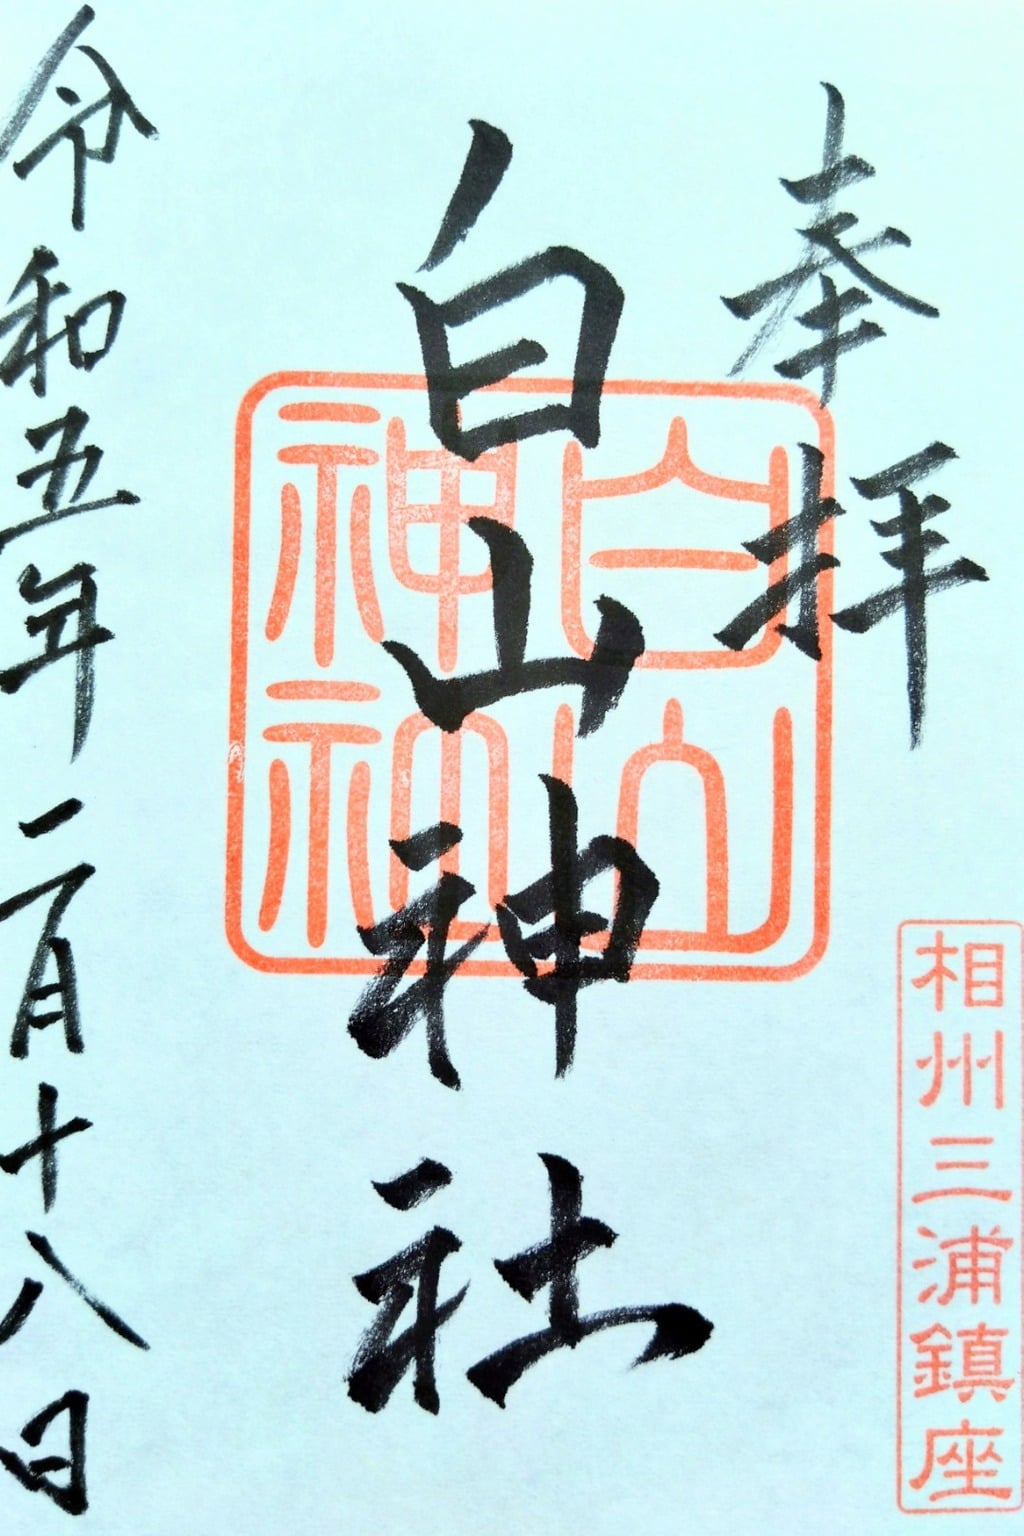 奉拝
相州三浦鎮座
白山神社
白山
神社
令和五年二月十八日